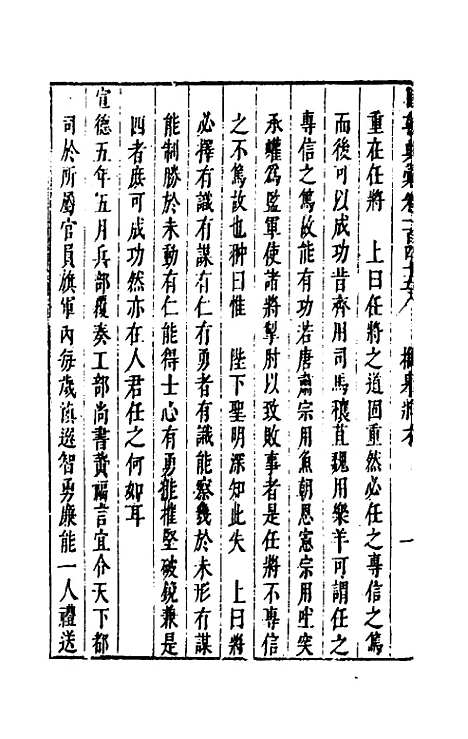 國朝典彙卷一百四十五 推舉將才 一
重在任將 上曰任將之道固重然必任之專信之篤
而後可以成功昔齊用司馬穰苴魏用樂羊可謂任之
專信之篤故能有功若唐肅宗用魚朝恩憲宗用吐突
承璀爲監軍使諸將掣肘以致敗事者是任將不專信
之不篤故也翀曰惟 陛下聖明深知此失 上曰將
必擇有識有謀有仁有勇者有識能察幾於未形有謀
能制勝於未動有仁能得士心有勇能摧堅破銳兼是
四者庶可成功然亦在人君任之何如耳
宣德五年五月兵部覆奏工部尚書黃福言宜令天下都
司於所屬官員旗軍內每歲預選智勇廉能一人禮送